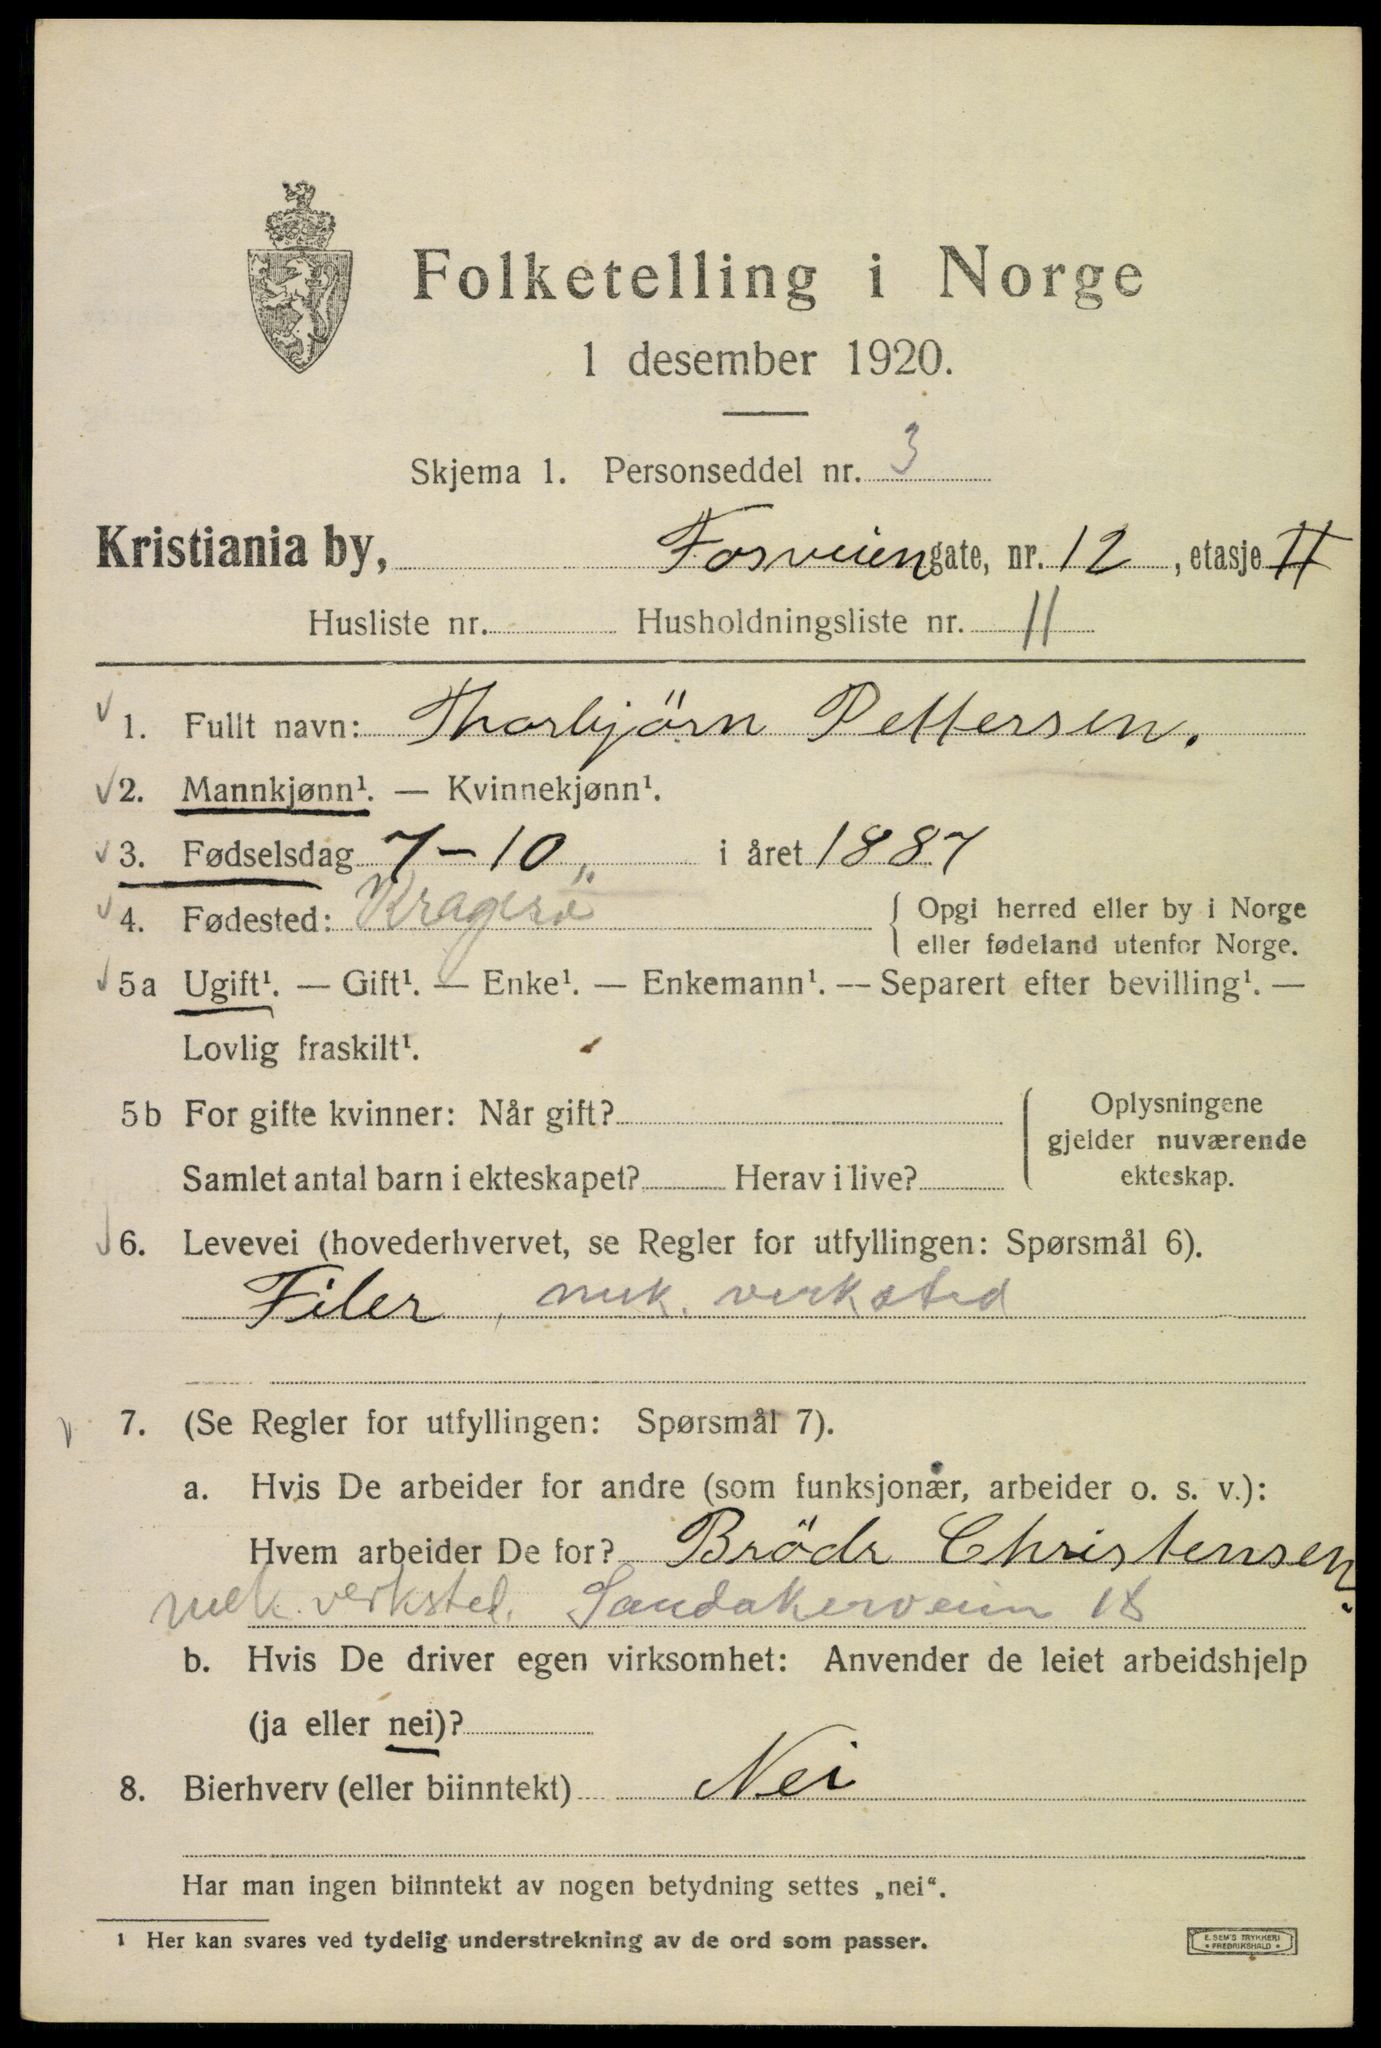 Folketelling i Norge
1 desember 1920.
Skjema 1. Personseddel nr. 3
Kristiania by, Fosveien gate, nr. 12, etasje II
Husliste nr. Husholdningsliste nr. 11
1. Fullt navn: Thorbjörn Pettersen.
2. Mannkjønn¹. — Kvinnekjønn¹.
3. Fødselsdag 7-10 i året 1887
4. Fødested: Kragerö { Opgi herred eller by i Norge
eller fødeland utenfor Norge.
5a Ugift¹. — Gift¹. — Enke¹. — Enkemann¹. — Separert efter bevilling¹. —
Lovlig fraskilt¹.
5b For gifte kvinner: Når gift?
Samlet antal barn i ekteskapet? Herav i live?
{ Oplysningene
gjelder nuværende
ekteskap.
6. Levevei (hovederhvervet, se Regler for utfyllingen: Spørsmål 6).
Filer, mek. verksted
7. (Se Regler for utfyllingen: Spørsmål 7).
a. Hvis De arbeider for andre (som funksjonær, arbeider o. s. v.):
Hvem arbeider De for? Brödr Christensen.
mek. verksted. Sandakerveien 18
b. Hvis De driver egen virksomhet: Anvender de leiet arbeidshjelp
(ja eller nei)?
8. Bierhverv (eller biinntekt) Nei
Har man ingen biinntekt av nogen betydning settes „nei“.
1 Her kan svares ved tydelig understrekning av de ord som passer.
E. SEM'S TRYKKERI
• FREDRIKSHALD •